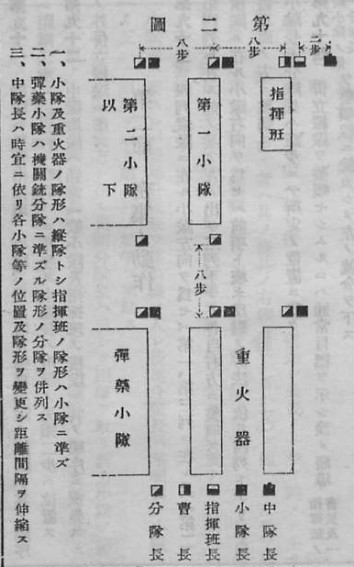 第二圖
二步
八步
八步
指揮班
第一小隊
第二小隊
以下
八步
重火器
彈藥小隊
中隊長
小隊長
指揮班長
曹長
分隊長
一、小隊及重火器ノ隊形ハ縱隊トシ指揮班ノ隊形ハ小隊ニ準ズ
二、彈藥小隊ハ機關銃分隊ニ準ズル隊形ノ分隊ヲ併列ス
三、中隊長ハ時宜ニ依リ各小隊等ノ位置及隊形ヲ變更シ距離間隔ヲ伸縮ス